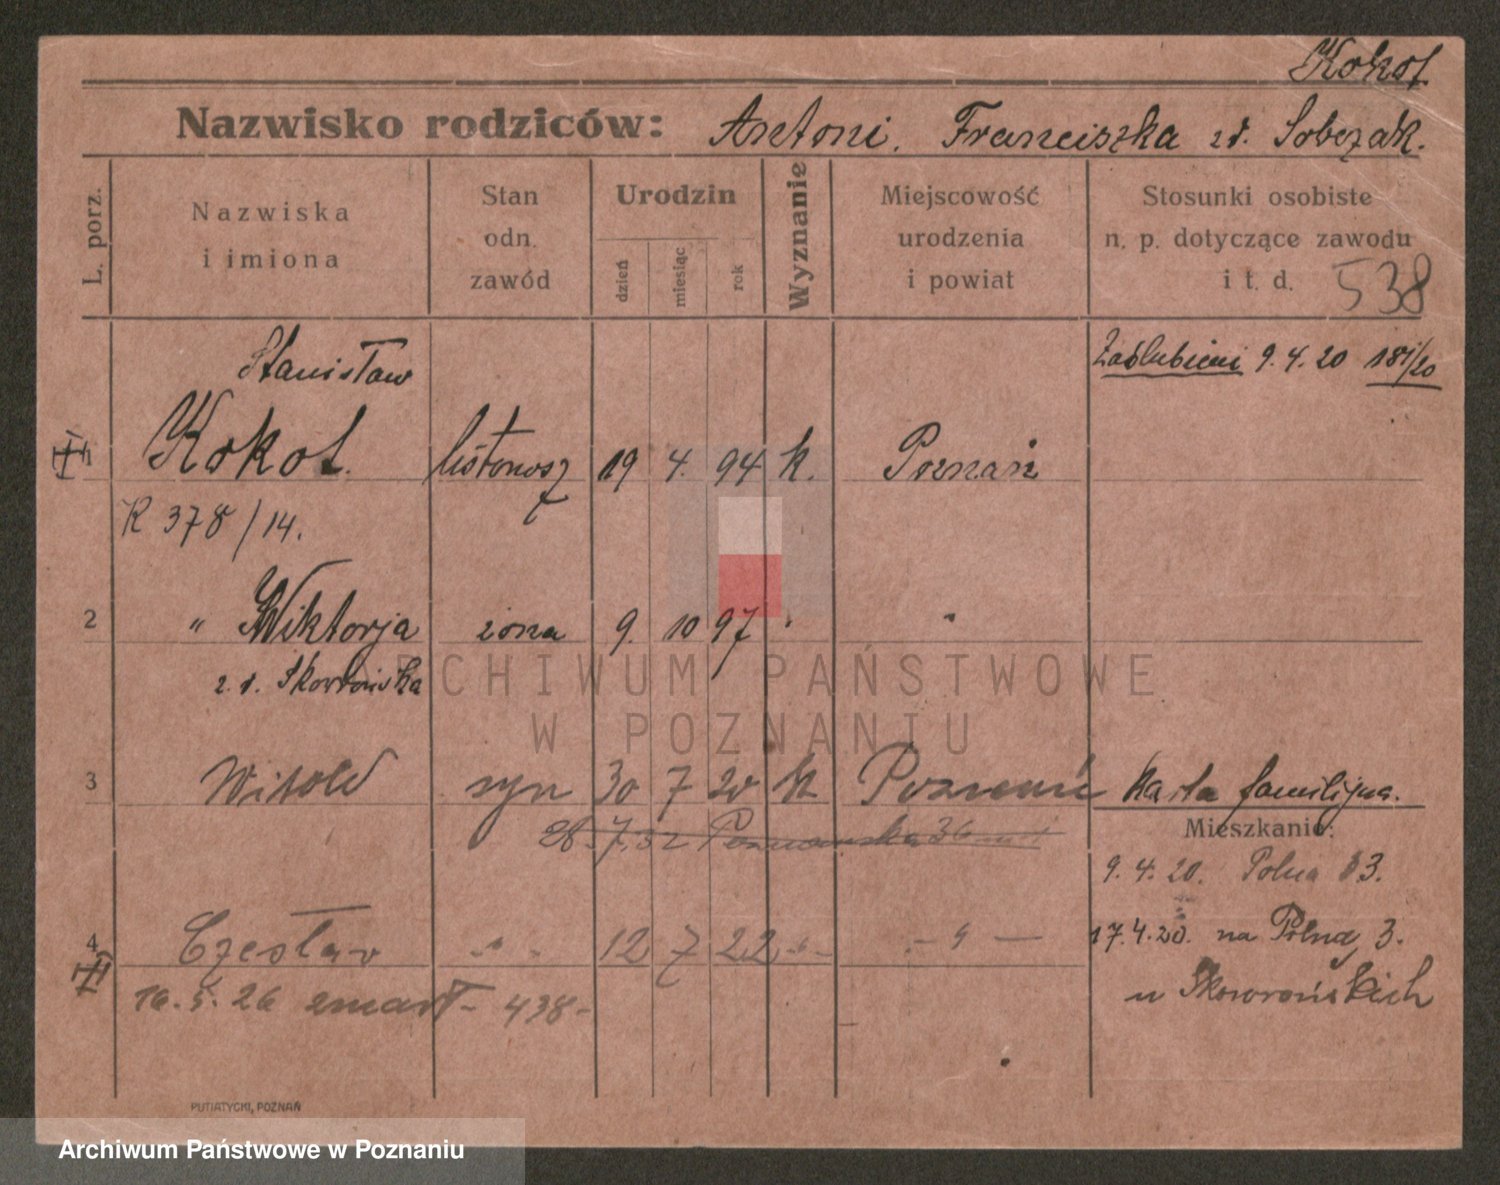 Kokot
Nazwisko rodziców: Antoni, Franciszka z d. Sobczak.
L. porz.
Nazwiska i imiona
Stan odn. zawód
Urodzin
dzień miesiąc rok
Wyznanie
Miejscowość urodzenia i powiat
Stosunki osobiste n. p. dotyczące zawodu i t. d. 538
Stanisław
Zaślubieni 9. 4. 20 181/20
1 Kokot. listonosz 19 4. 94 k. Poznań
K 378/14.
2 " Wiktorja żona 9. 10 97 " "
z. d. Skowrońska
3 Witold syn 30 7 20 k Poznań Karta familijna.
28. 7. 32 Poznańska 36
Mieszkanie:
9. 4. 20. Polna 33.
4 Czesław " " 12 7 22 - " - - " -
17. 4. 20. na Polną 3.
16. 5. 26 zmarł - 438 -
u Skowrońskich
PUTIATYCKI, POZNAŃ
ARCHIWUM PAŃSTWOWE
W POZNANIU
Archiwum Państwowe w Poznaniu